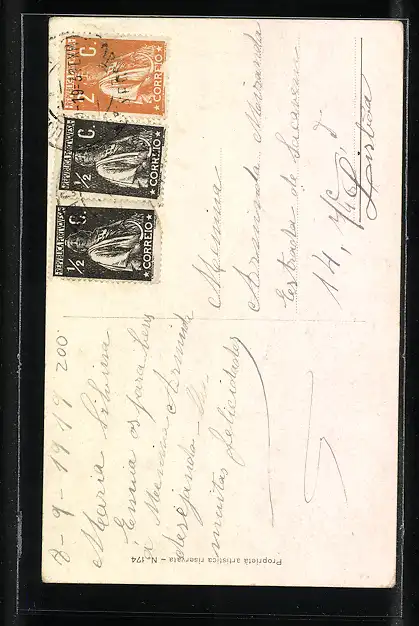 8-9-1919 200
Maria Silveira
Envia os parabens
a Menina Arminda
desejando-lhe
muitas felicidades
Menina
Arminda Miranda
Estrada de Sacavem
14, r/c D.
Lisboa
REPUBLICA PORTUGUESA
2 C.
CORREIO
REPUBLICA PORTUGUESA
½ C.
CORREIO
REPUBLICA PORTUGUESA
½ C.
CORREIO
Proprietà artistica riservata - N. 174